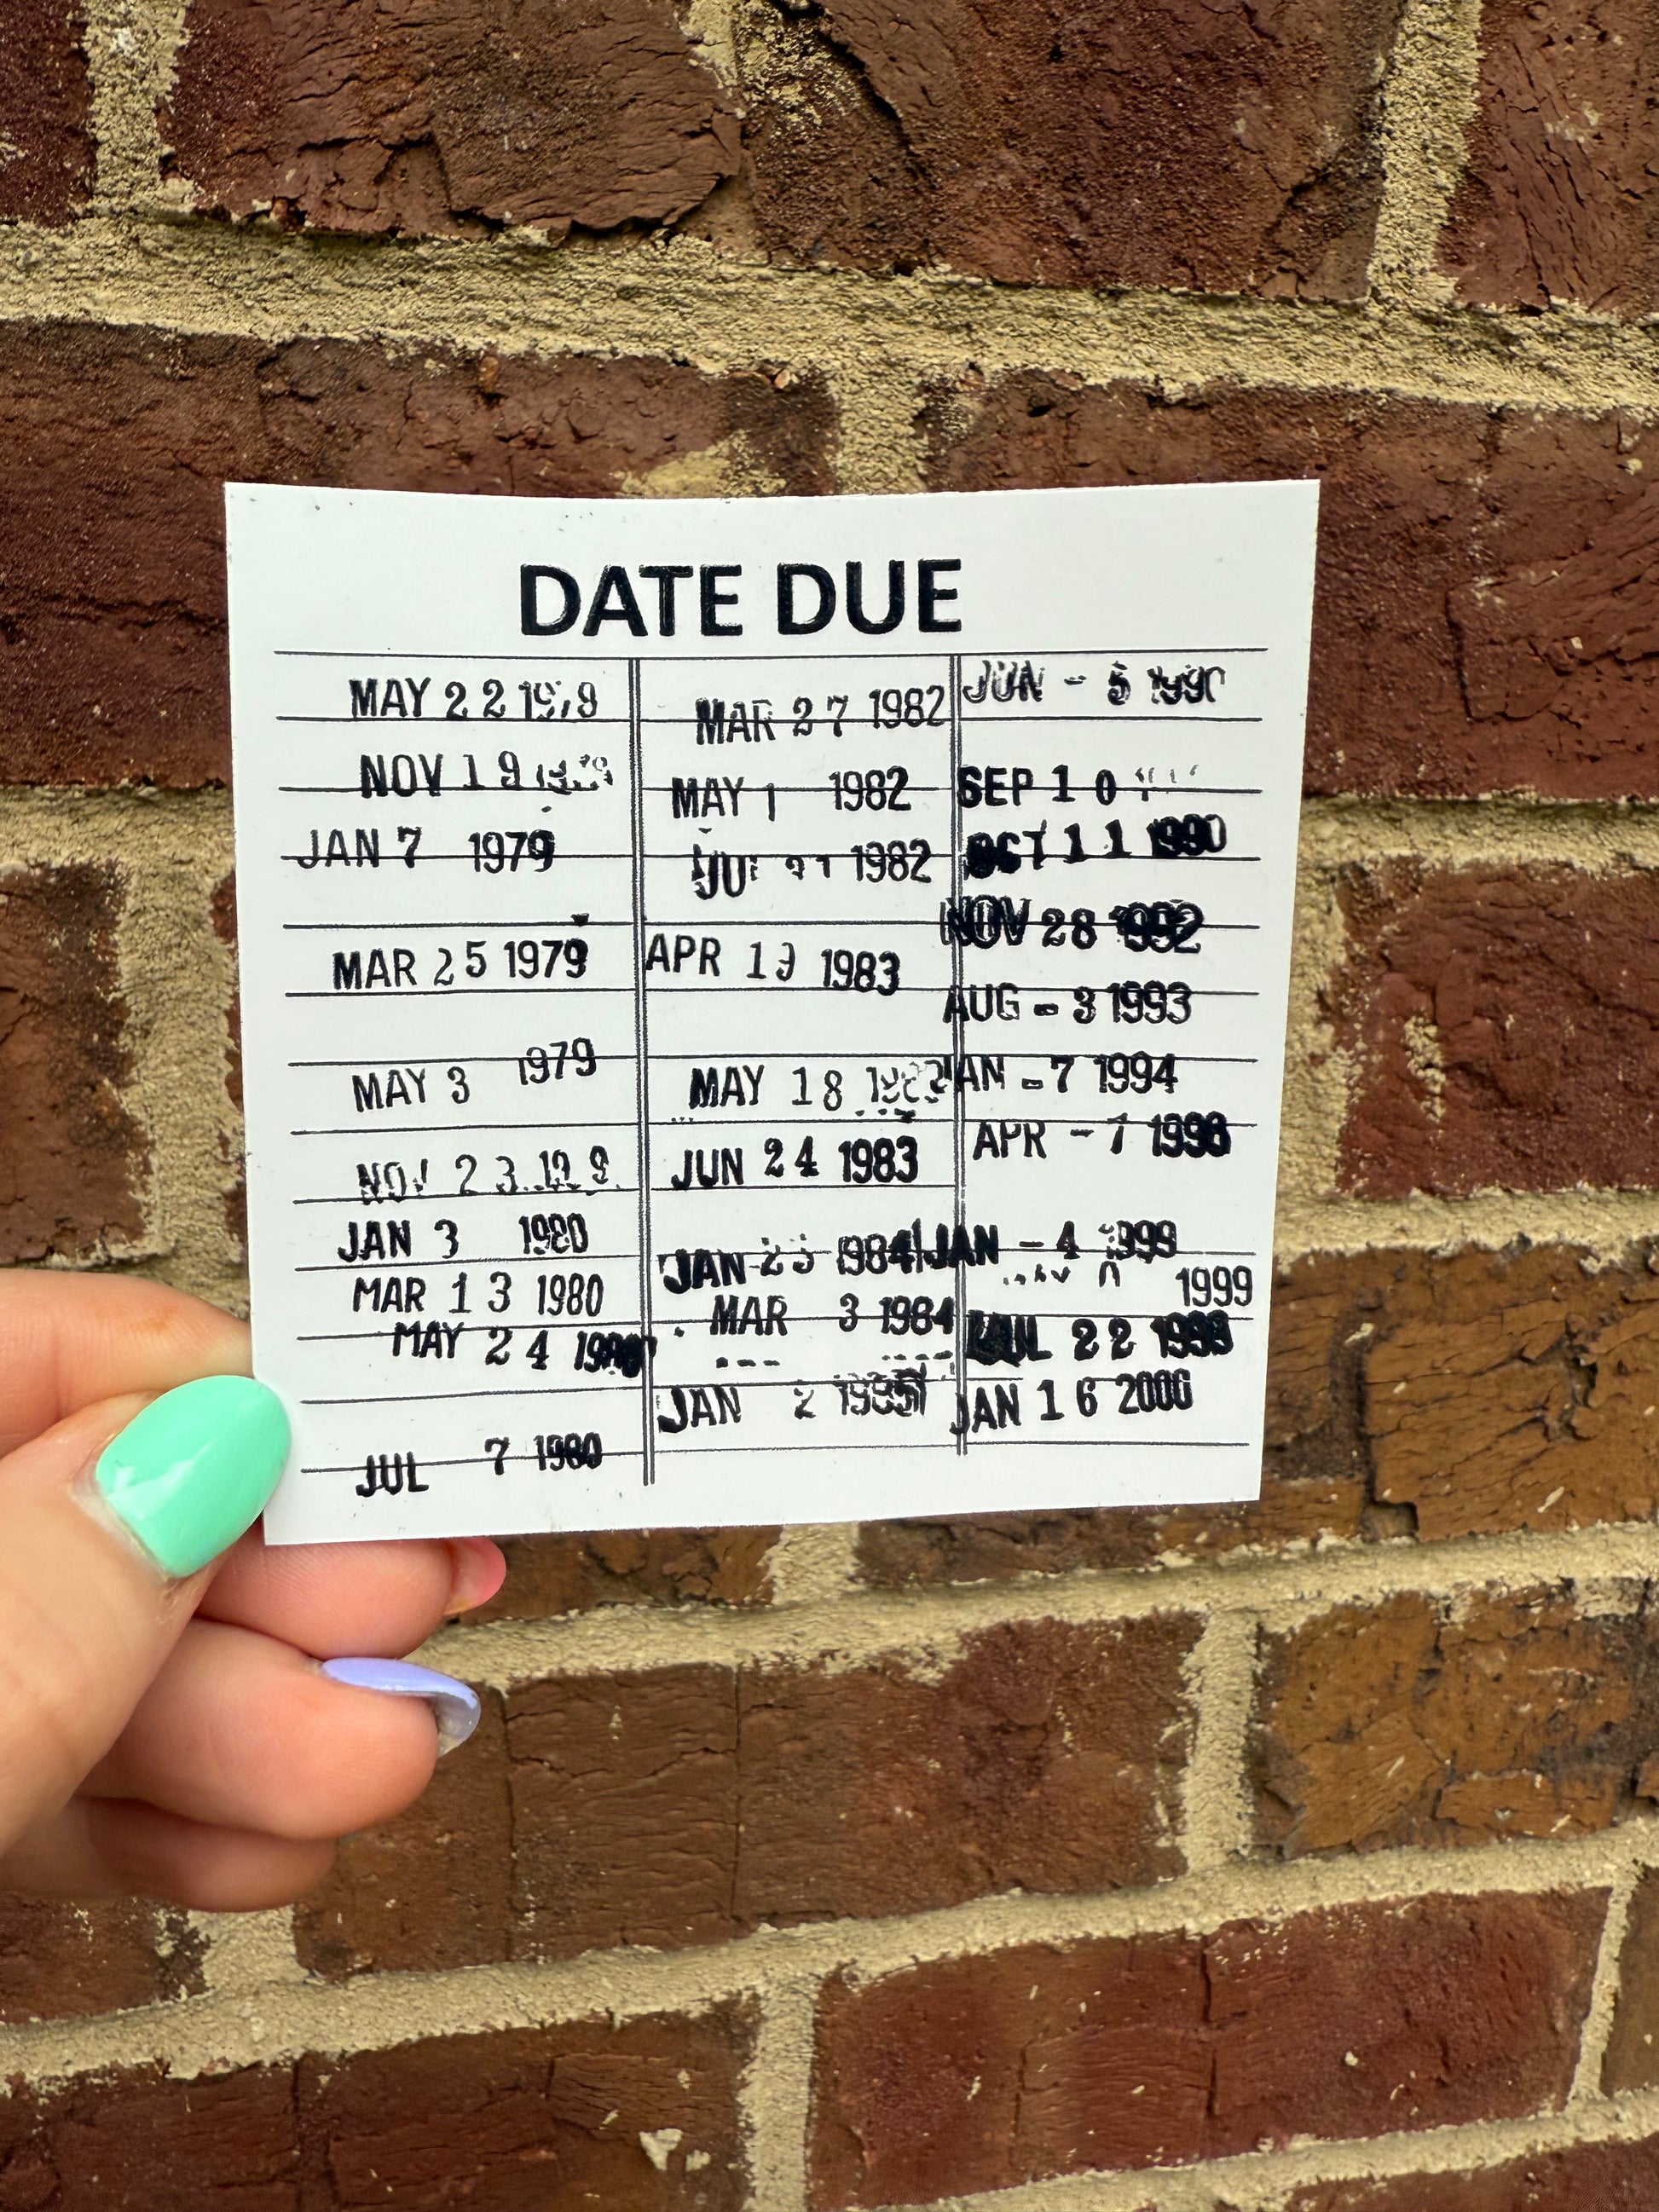 DATE DUE
MAY 22
NOV 19
JAN 7 1979
MAR 25 1979
MAY 3 1979
NOV 23
JAN 3 1980
MAR 13 1980
MAY 24
JUL 7 1980
MAR 27 1982
MAY 1 1982
1982
APR 1983
MAY 18
JUN 24 1983
JAN 1984
MAR 3 1984
JAN 2
JUN - 5
SEP 10
OCT 11 1990
NOV 28 1992
AUG - 3 1993
JAN - 7 1994
APR - 7
JAN - 4 1999
1999
22
JAN 16